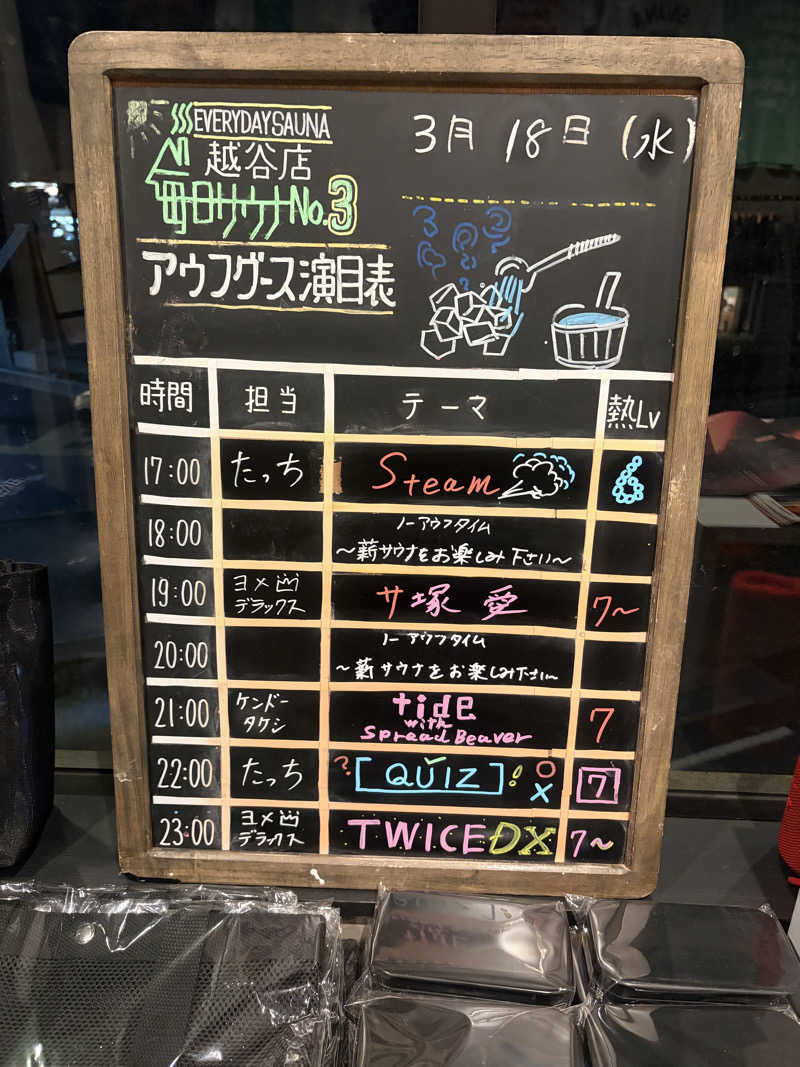 EVERYDAY SAUNA
越谷店
毎日サウナ No.3
3月 18日 (水)
アウフグース演目表
時間 担当 テーマ 熱Lv
17:00 たっち Steam 6
18:00 ノーアウフタイム
〜薪サウナをお楽しみ下さい〜
19:00 ヨメ凶
デラックス サ塚 愛 7〜
20:00 ノーアウフタイム
〜薪サウナをお楽しみ下さい〜
21:00 ケンドー
タケシ tide
with
Spread Beaver 7
22:00 たっち ? [QUIZ] ! ○
× 7
23:00 ヨメ凶
デラックス TWICE DX 7〜